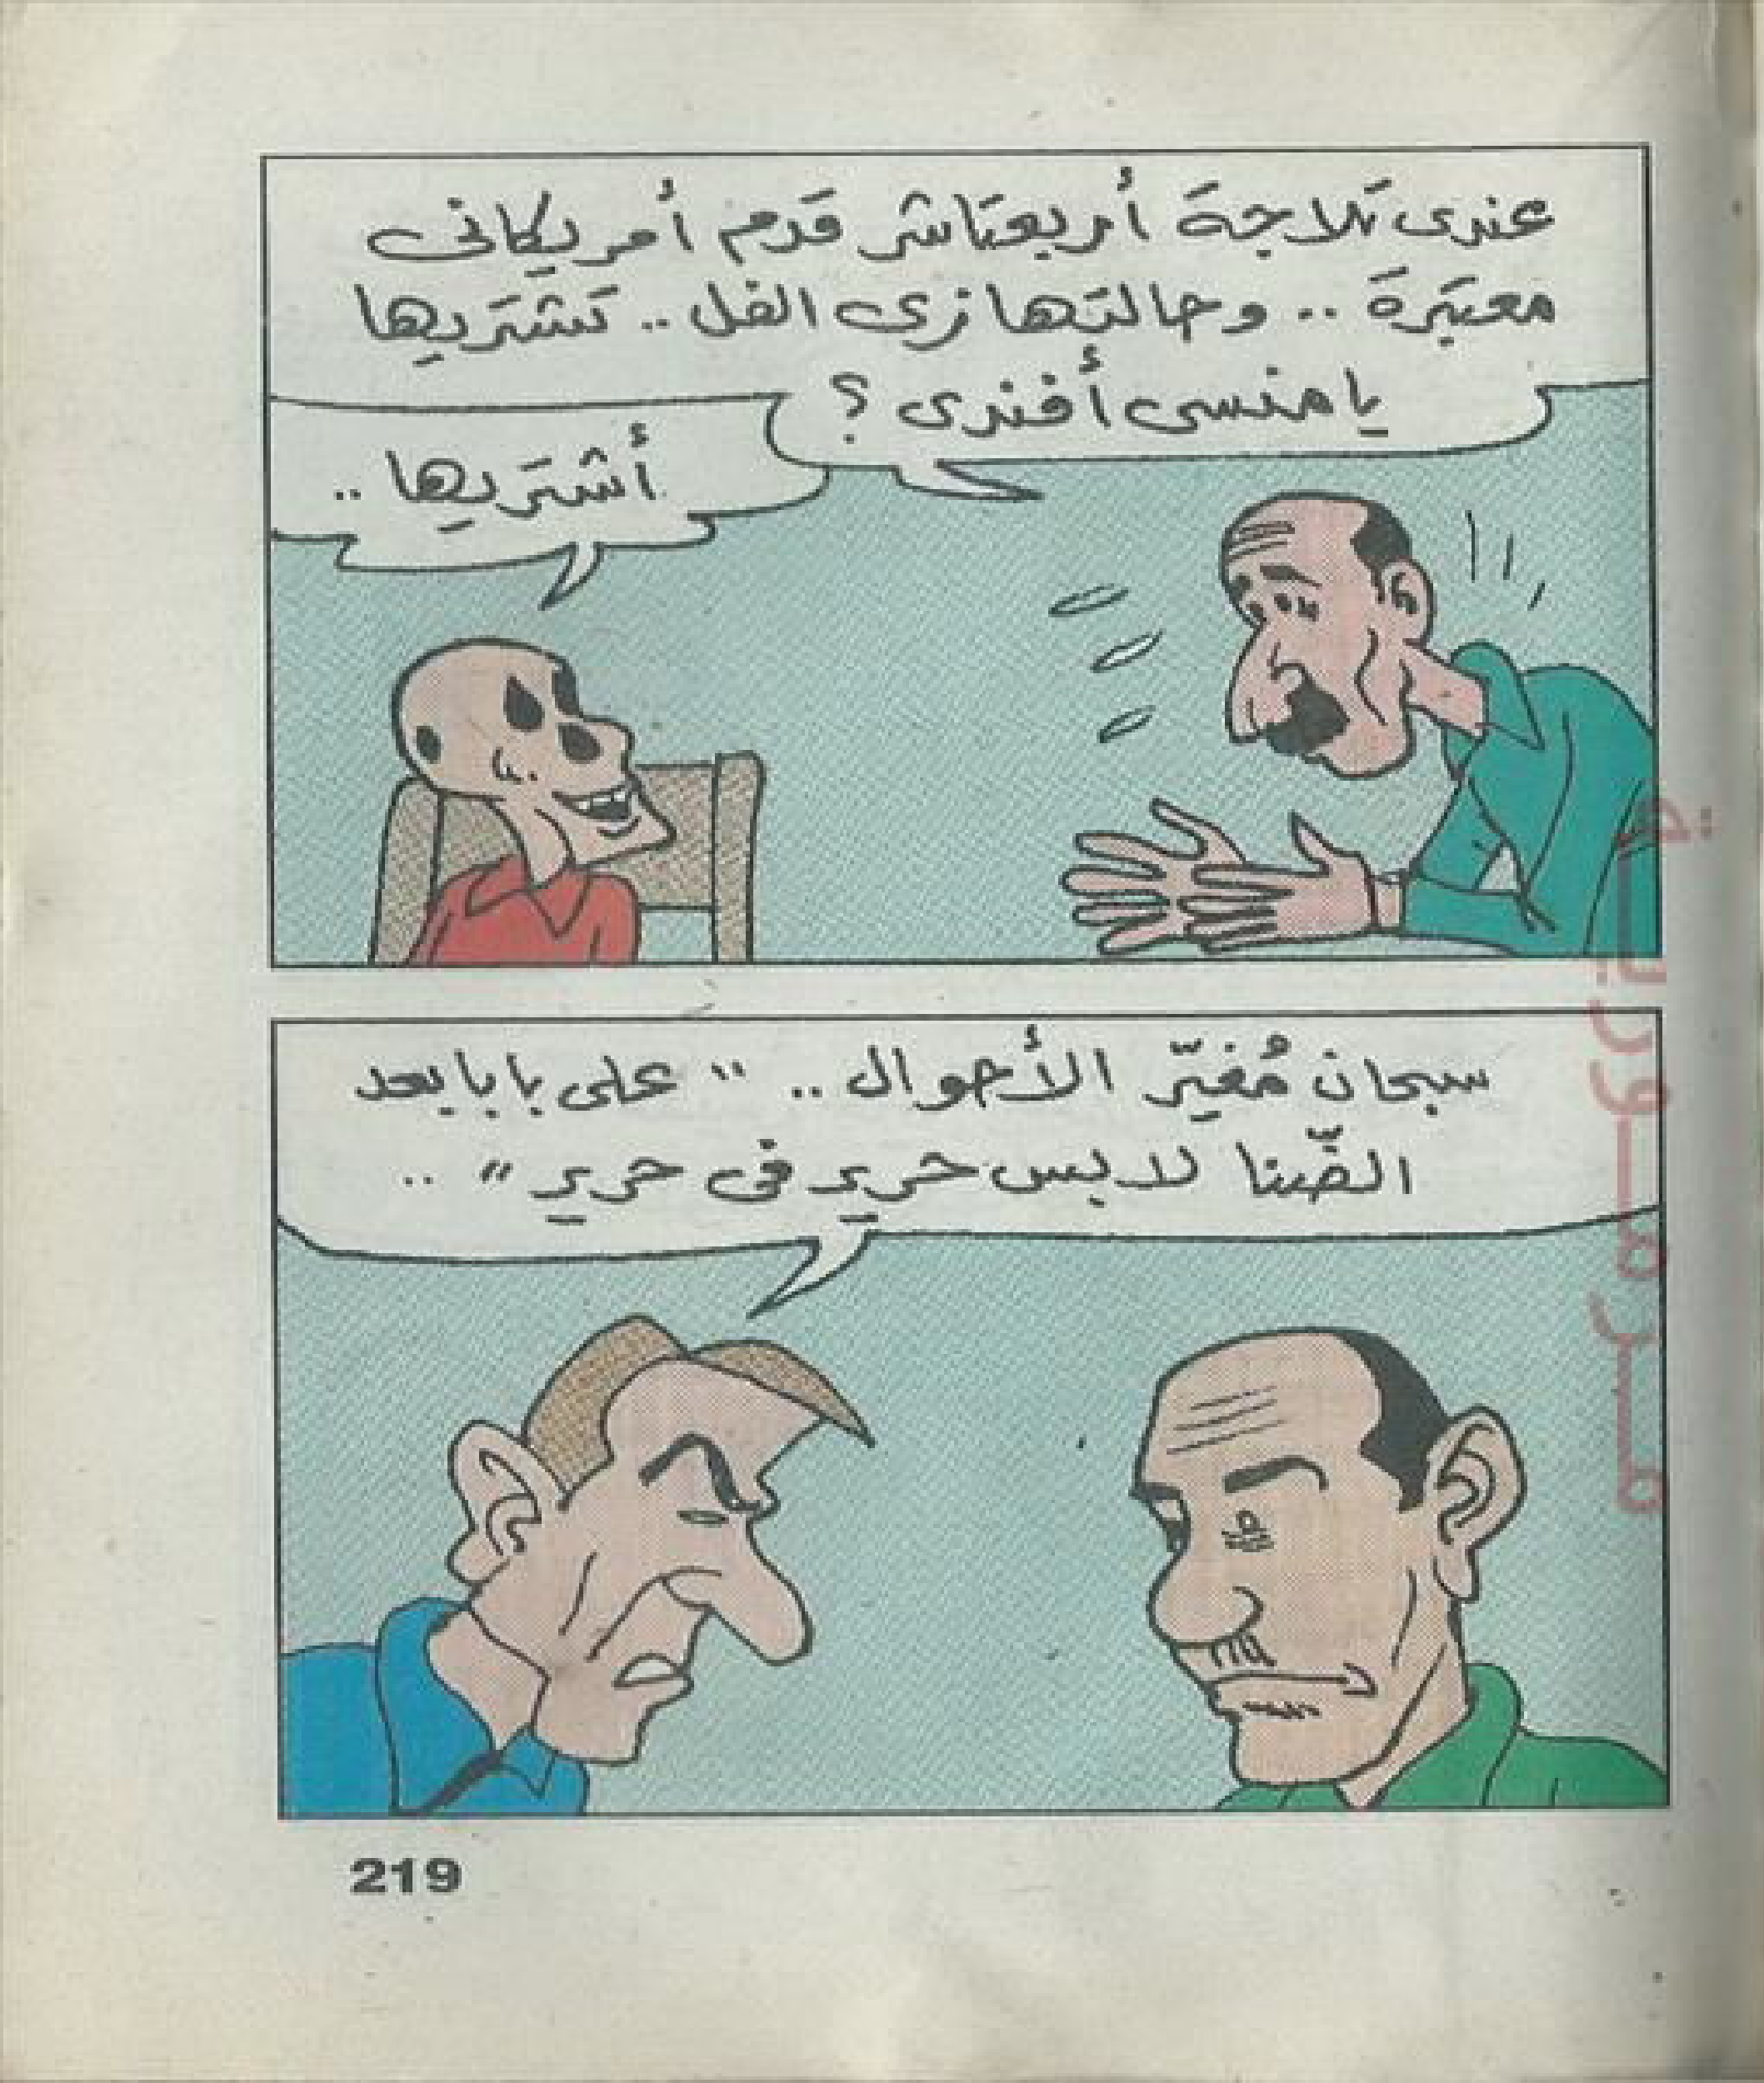 عندى تلاجة أربعتاشر قدم أمريكانى
معتبرة .. وحالتها زى الفل .. تشتريها
يا منسى أفندى ؟
أشتريها ..
سبحان مُغيّر الأحوال .. " على بابا بعد
الضّنا لابس حرير فى حرير " ..
219